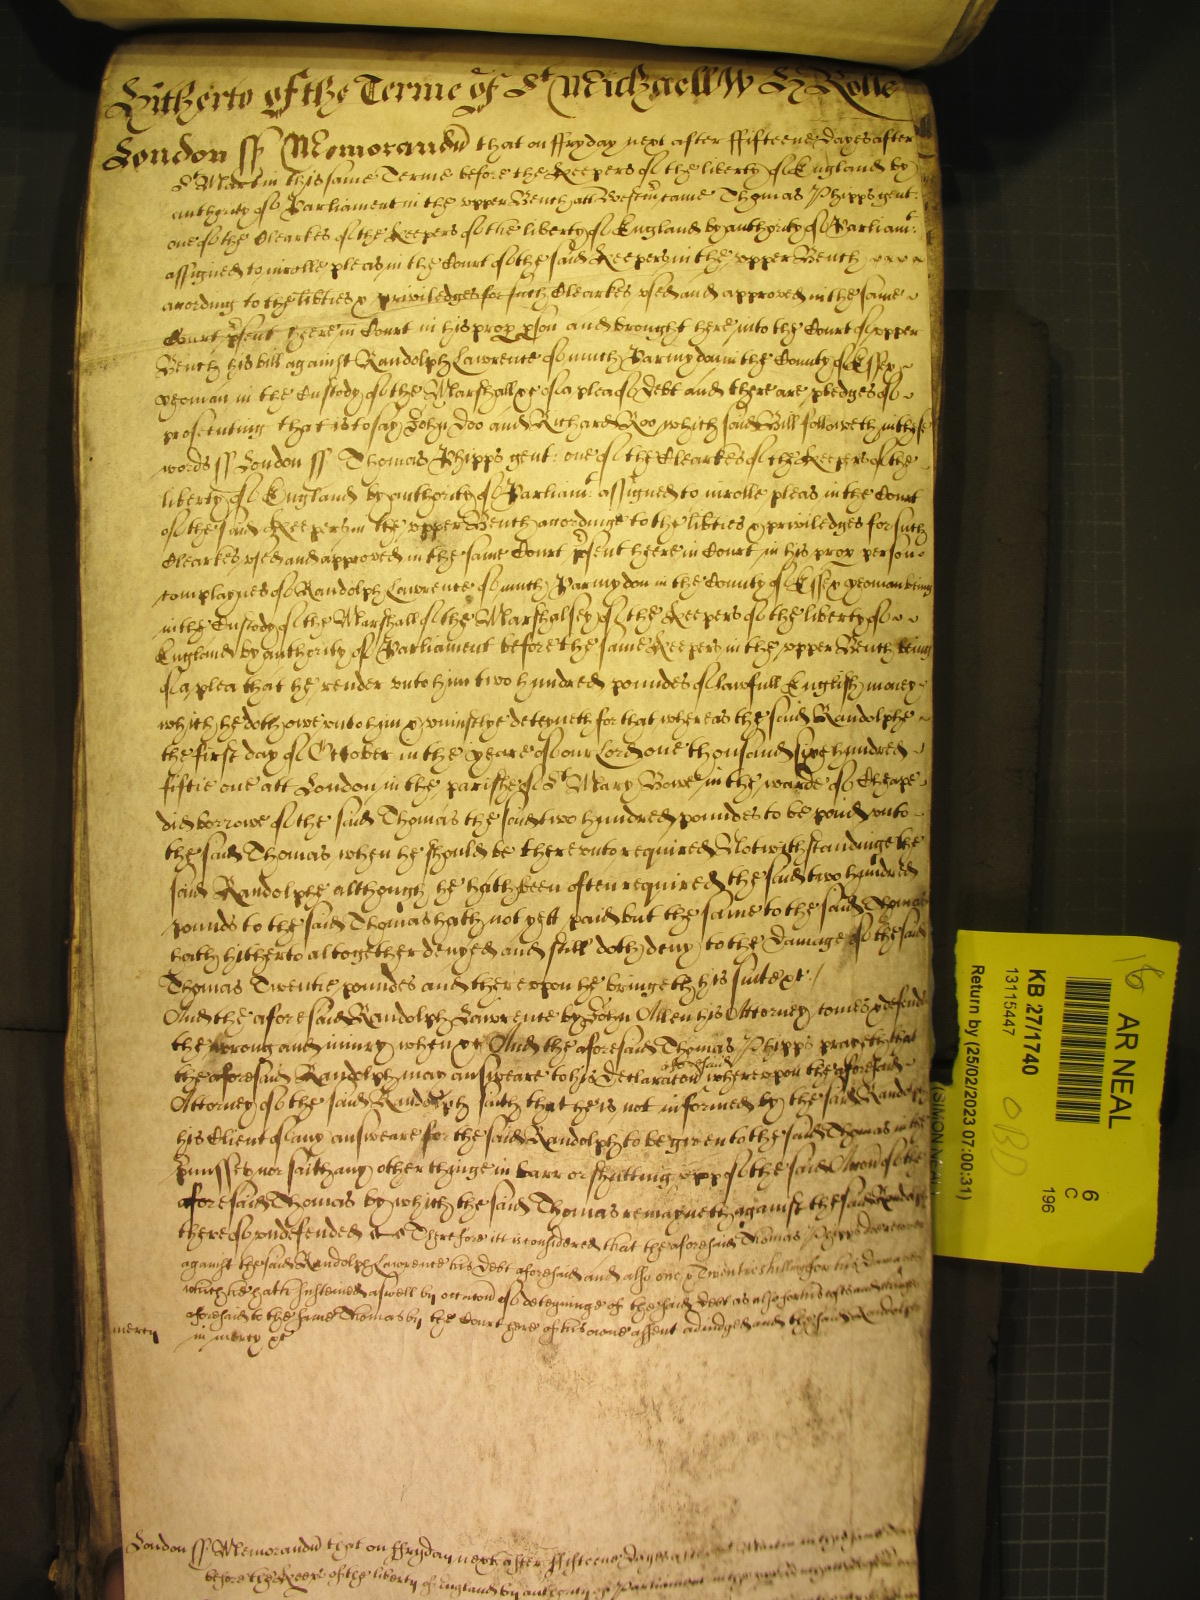 Hitherto of the Terme of St Michaell W H Rolle
London ss Memorandu that on ffryday next after ffifteene Dayes after
St Martin this same Terme before the Keepers of the liberty of England by
authority of Parliament in the upper Bench att Westm came Thomas Phipps gent:
one of the Clearkes of the Keepers of the liberty of England by authority of Parliamt.
assigned to inrolle pleas in the Court of the said Keepers in the upper Bench
acording to the lib'ties & priviledges for such Clearkes used and approved in the same
Court p'sent here in Court in his prop p'son and brought here into the Court of upper
Bench his bill against Randolph Lawrence of much Parmydon in the County of Essex
yeoman in the Custody of the Marshall &c of a plea of Debt and there are pledges of
prosecuting that is to say John Doo and Richard Roo which said Bill followeth in these
words ss London ss Thomas Phipps gent: one of the Clearkes of the Keepers of the
liberty of England by authority of Parliamt. assigned to inrolle pleas in the Court
of the said Keepers in the upper Bench acordinge to the lib'ties & priviledges for such
Clearkes used and approved in the same Court p'sent here in Court in his prop person
complaynes of Randolph Lawrence of much Parmydon in the County of Essex yeoman being
in the Custody of the Marshall of the Marshalsey of the Keepers of the liberty of
England by authority of Parliament before the same Keepers in the upper Bench being
of a plea that he render unto him two hundred poundes of lawfull English money
which he doth owe unto him & uniustlye deteyneth for that whereas the said Randolphe
the first day of October in the yeare of our Lord one thousand sixe hundred
fiftie one att London in the parishe of St Mary Bowe in the warde of Cheape
did borrowe of the said Thomas the said two hundred poundes to be paid unto
the said Thomas when he should be thereunto required Notwithstandinge the
said Randolphe although he hath been often required the said two hundred
pounds to the said Thomas hath not yett paid but the same to the said Thomas
hath hitherto altogether denyed and still doth deny to the Damage of the said
Thomas Twentie poundes and thereupon he bringeth his suite &c:/
And the aforesaid Randolph Lawrence by John Allen his Attorney comes & defends
the wrong and iniury when &c And the aforesaid Thomas Phipps prayeth that
the aforesaid Randolph may answeare to his Declaration aforesaid whereupon the aforesaid
Attorney of the said Randolph saith that he is not informed by the said Randolph
his Client of any answeare for the said Randolph to be given to the said Thomas in the
p'misses nor saith any other thinge in barr or shutting upp of the said Accon of the
aforesaid Thomas by which the said Thomas remayneth against the said Randolph
thereof undefended &c Therefore itt is considered that the aforesaid Thomas Phipps doe recover
against the said Randolph Lawrence his Debt aforesaid and also one & Twentie shillings for his Damages
which he hath susteined aswell by occasion of deteyninge of the said Debt as also for his costs and charges
aforesaid to the same Thomas by the Court here of his owne assent adiudged and the said Randolph
mercy
in mercy &c
London ss Memorandu that on ffryday next after ffifteene Dayes after St Martin in this same Terme
before the Keeps of the liberty of England by authority of Parliament in the upper Bench
16
AR NEAL
KB 27/1740
13115447
Return by (25/02/2023 07:00:31)
(SIMON NEAL)
6
C
196
OBD